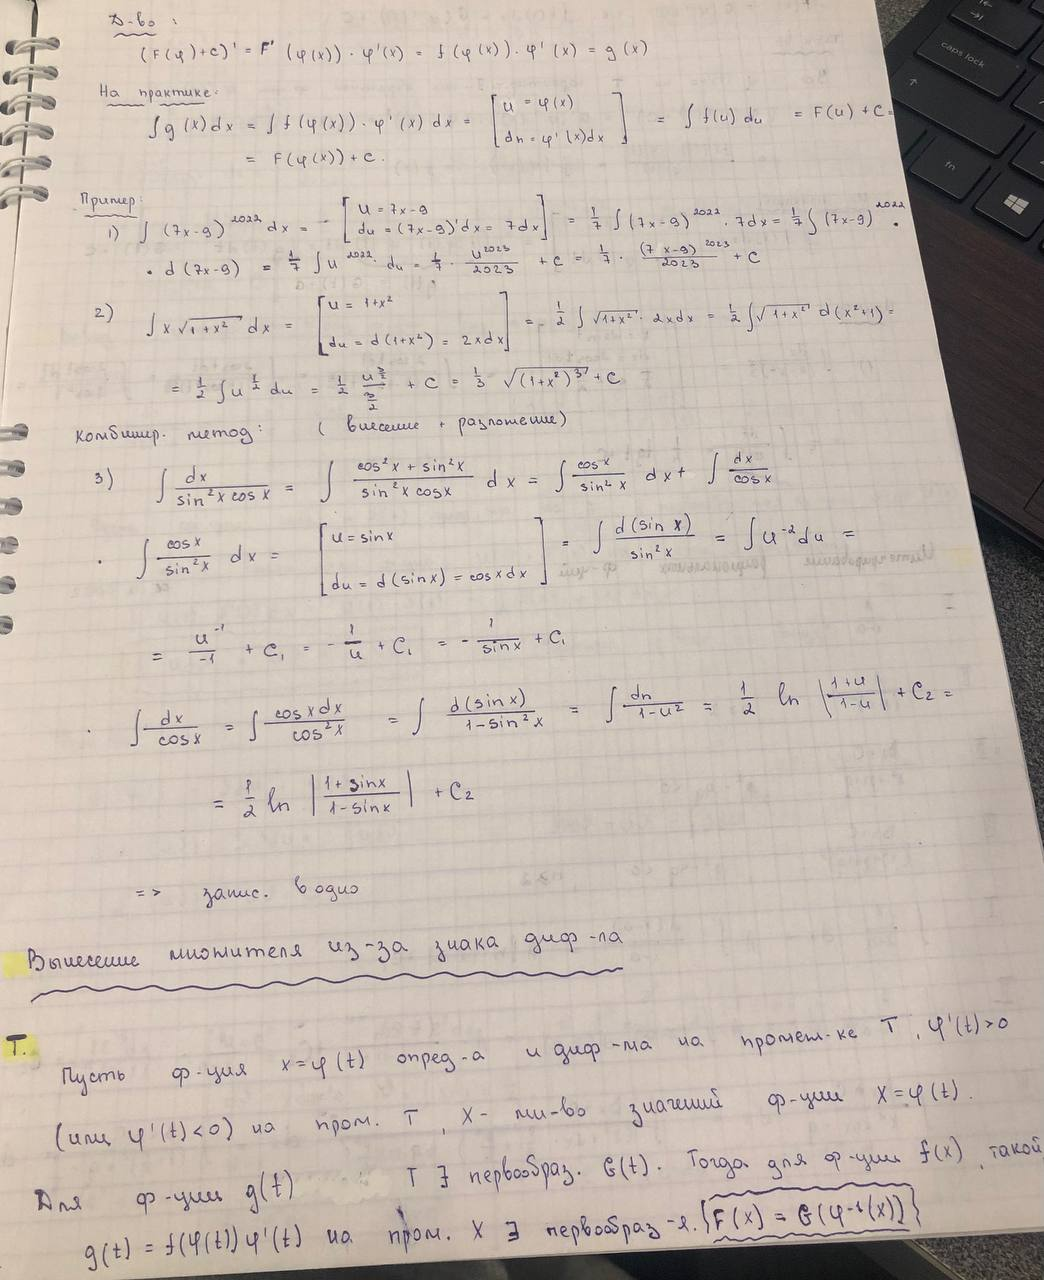 Д-во:
(F(φ)+c)' = F'(φ(x)) · φ'(x) = f(φ(x)) · φ'(x) = g(x)
На практике:
∫g(x)dx = ∫f(φ(x)) · φ'(x) dx = [u = φ(x) du = φ'(x)dx] = ∫f(u) du = F(u) + C =
= F(φ(x)) + c.
Пример:
1) ∫(7x-9)^2022 dx = [u = 7x-9 du = (7x-9)'dx = 7dx] = 1/7 ∫(7x-9)^2022 · 7dx = 1/7 ∫(7x-9)^2022 ·
· d(7x-9) = 1/7 ∫u^2022 · du = 1/7 · u^2023/2023 + c = 1/7 · (7x-9)^2023/2023 + C
2) ∫x√(1+x²) dx = [u = 1+x² du = d(1+x²) = 2xdx] = 1/2 ∫√(1+x²) · 2xdx = 1/2 ∫√(1+x²) d(x²+1) =
= 1/2 ∫u^(1/2) du = 1/2 u^(3/2)/(3/2) + C = 1/3 √((1+x²)³) + C
Комбинир. метод: (внесение + разложение)
3) ∫dx/(sin²x cosx) = ∫(cos²x + sin²x)/(sin²x cosx) dx = ∫cosx/sin²x dx + ∫dx/cosx
· ∫cosx/sin²x dx = [u = sinx du = d(sinx) = cosxdx] = ∫d(sinx)/sin²x = ∫u^(-2)du =
= u^(-1)/(-1) + C₁ = -1/u + C₁ = -1/sinx + C₁
· ∫dx/cosx = ∫cosxdx/cos²x = ∫d(sinx)/(1-sin²x) = ∫du/(1-u²) = 1/2 ln|(1+u)/(1-u)| + C₂ =
= 1/2 ln|(1+sinx)/(1-sinx)| + C₂
=> запис. в одно
Вынесение множителя из-за знака диф-ла
Т.
Пусть ф-ция x=φ(t) опред-а и диф-ма на промеж-ке T, φ'(t)>0
(или φ'(t)<0) на пром. T, X- мн-во значений ф-ции X=φ(t).
Для ф-ции g(t) T ∃ первообраз. G(t). Тогда для ф-ции f(x), такой
g(t) = f(φ(t))φ'(t) на пром. X ∃ первообраз-я. {F(x) = G(φ⁻¹(x))}
caps lock
fn